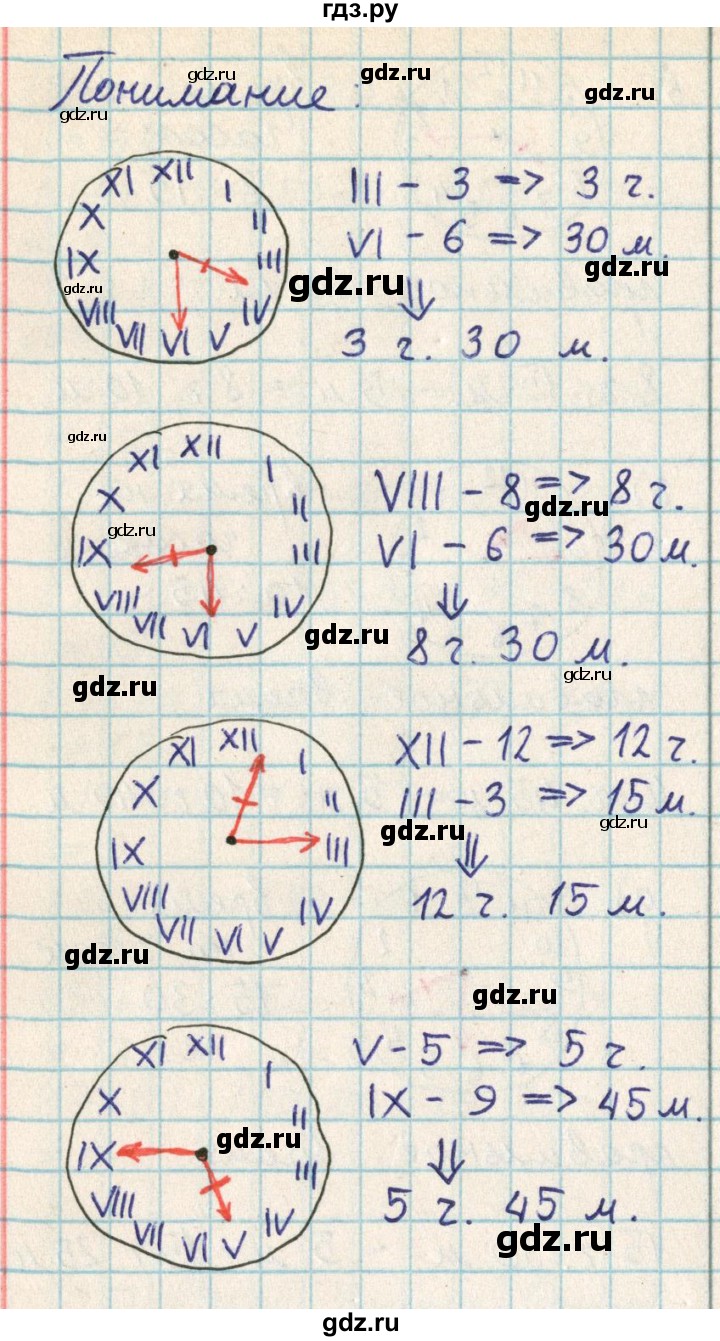 гдз.ру
Понимание:
gdz.ru
gdz.ru
gdz.ru
gdz.ru
XII
I
II
III
IV
V
VI
VII
VIII
IX
X
XI
gdz.ru
III - 3 => 3 г.
VI - 6 => 30 м.
gdz.ru
gdz.ru
⇓
3 г. 30 м.
gdz.ru
XII
I
II
III
IV
V
VI
VII
VIII
IX
X
XI
gdz.ru
VIII - 8 => 8 г.
gdz.ru
VI - 6 => 30 м.
gdz.ru
⇓
8 г. 30 м.
gdz.ru
gdz.ru
XII
I
II
III
IV
V
VI
VII
VIII
IX
X
XI
XII - 12 => 12 г.
III - 3 => 15 м.
gdz.ru
gdz.ru
⇓
12 г. 15 м.
gdz.ru
gdz.ru
XII
I
II
III
IV
V
VI
VII
VIII
IX
X
XI
gdz.ru
V - 5 => 5 г.
IX - 9 => 45 м.
⇓
5 г. 45 м.
gdz.ru
gdz.ru